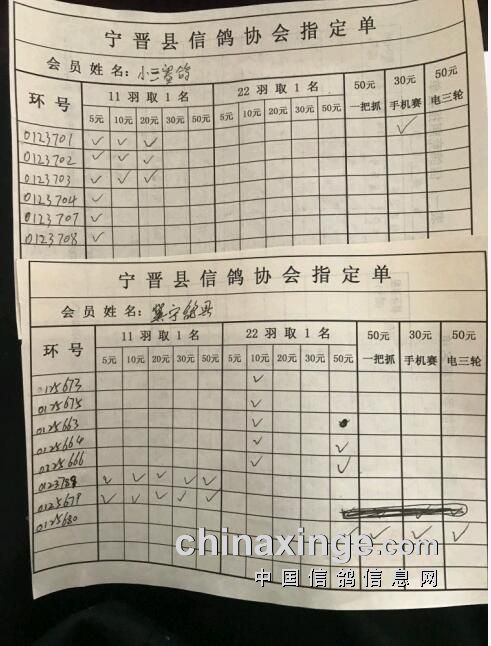 宁晋县信鸽协会指定单
会员姓名：小三
环号 11羽取1名 22羽取1名 50元一把抓 30元手机赛 50元电三轮
5元 10元 20元 30元 50元 5元 10元 20元 30元 50元
0123701 ✓ ✓ ✓ ✓
0123702 ✓ ✓ ✓
0123703 ✓ ✓ ✓
0123704 ✓
0123707 ✓
0123708 ✓
宁晋县信鸽协会指定单
会员姓名：冀宁
环号 11羽取1名 22羽取1名 50元一把抓 30元手机赛 50元电三轮
5元 10元 20元 30元 50元 5元 10元 20元 30元 50元
0125673 ✓
0125675 ✓
0125663 ✓
0125664 ✓ ✓
0125666 ✓ ✓
✓ ✓ ✓ ✓ ✓
0125679 ✓ ✓ ✓ ✓ ✓
0125680
✓ ✓ ✓ ✓
chinaxinge.com
中国信鸽信息网